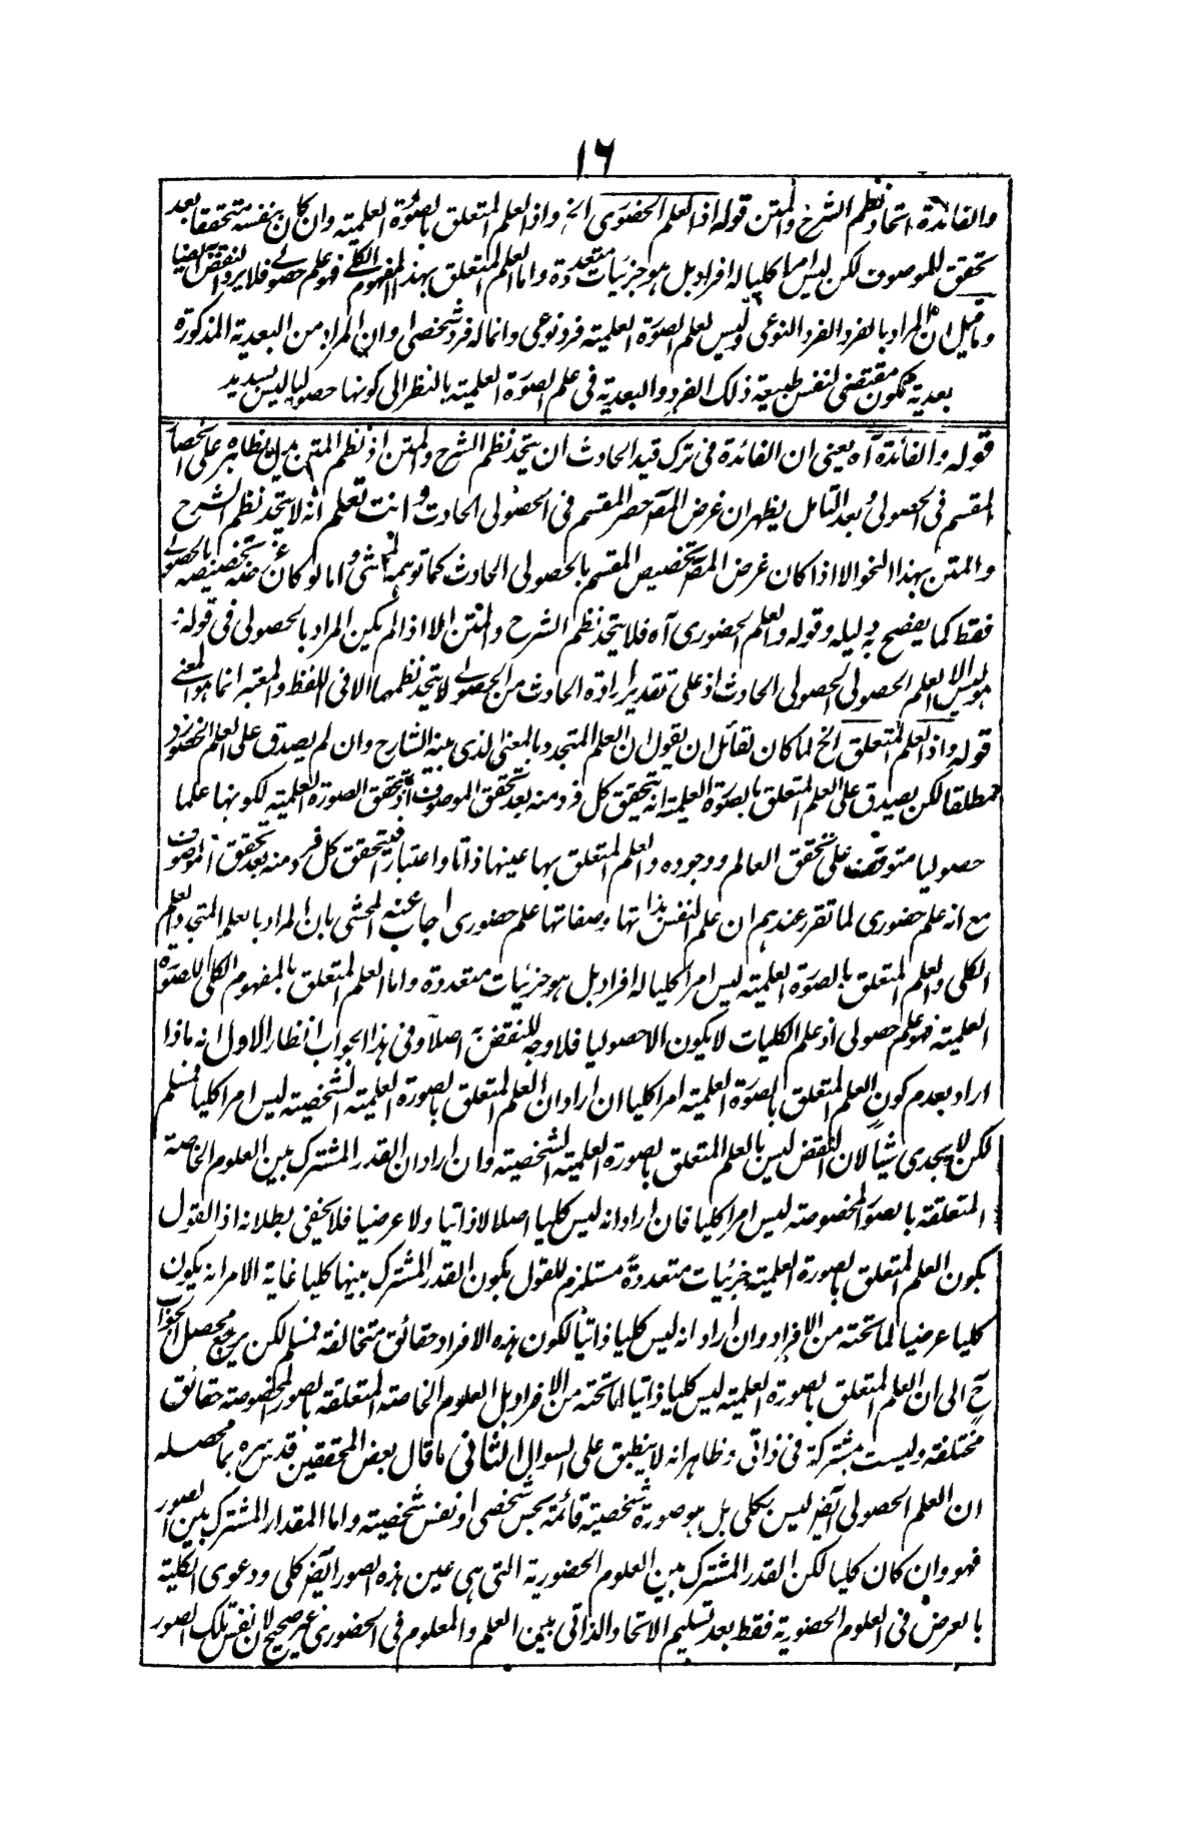 ١٦
والفائدة اتحاد نظم الشرح والمتن قوله اذ العلم الحضوري الخ واذ العلم المتعلق بالصورة العلمية وان كان بنفسه متحققا بعد
تحقق الموصوف لكن ليس امرا كليا له افراد بل هو جزئيات متعددة واما العلم المتعلق بهذا المفهوم الكلي فهو علم حصولي فلا يرد النقض ايضا
وما قيل ان المراد بالفرد الفرد النوعي وليس لعلم الصورة العلمية فرد نوعي وانما له فرد شخصي او ان المراد من البعدية المذكورة
بعدية تكون مقتضى لنفس طبيعة ذلك الفرد والبعدية في علم الصورة العلمية بالنظر الى كونها حصوليا ليس بسديد
قوله والفائدة آه يعني ان الفائدة في ترك قيد الحادث ان يتحد نظم الشرح والمتن اذ نظم المتن يدل بظاهره على انحصار
المقسم في الحصولي وبعد التامل يظهر ان غرض المصـ حصر المقسم في الحصولي الحادث وانت تعلم انه لا يتحد نظم الشرح
والمتن بهذا النحو الا اذا كان غرض المصـ تخصيص المقسم بالحصولي الحادث كما توهمه المحشي واما لو كان غرضه تخصيصه بالحصولي
فقط كما يفصح به دليله وقوله والعلم الحضوري آه فلا يتحد نظم الشرح والمتن الا اذا لم يكن المراد بالحصولي في قوله
وليس الا العلم الحصولي الحصولي الحادث اذ على تقدير ارادة الحادث من الحصولي لا يتحد نظمهما الا في اللفظ والمعتبر انما هو المعنى
قوله واذ العلم المتعلق الخ لما كان لقائل ان يقول ان العلم المتجدد بالمعنى الذي بينه الشارح وان لم يصدق على العلم الحضوري
مطلقا لكن يصدق على العلم المتعلق بالصورة العلمية انه يتحقق كل فرد منه بعد تحقق الموصوف اذ تحقق الصورة العلمية لكونها علما
حصوليا متوقف على تحقق العالم ووجوده والعلم المتعلق بها عينها ذاتا واعتبارا فيتحقق كل فرد منه بعد تحقق الموصوف
مع انه علم حضوري لما تقرر عندهم ان علم النفس بذاتها وصفاتها علم حضوري اجاب عنه المحشي بان المراد بالعلم المتجدد العلم
الكلي والعلم المتعلق بالصورة العلمية ليس امرا كليا له افراد بل هو جزئيات متعددة واما العلم المتعلق بالمفهوم الكلي للصورة
العلمية فهو علم حصولي اذ علم الكليات لا يكون الا حصوليا فلا وجه للنقض به اصلا وفي هذا الجواب انظار الاول انه ماذا
اراد بعدم كون العلم المتعلق بالصورة العلمية امرا كليا ان اراد ان العلم المتعلق بالصورة العلمية الشخصية ليس امرا كليا فمسلم
لكن لا يجدي شيأ لان النقض ليس بالعلم المتعلق بالصورة العلمية الشخصية وان اراد ان القدر المشترك بين العلوم الخاصة
المتعلقة بالصور المخصوصة ليس امرا كليا فان اراد انه ليس كليا اصلا لا ذاتيا ولا عرضيا فلا يخفى بطلانه اذ القول
بكون العلم المتعلق بالصورة العلمية جزئيات متعددة مستلزم للقول بكون القدر المشترك بينها كليا غاية الامر انه يكون
كليا عرضيا لما تحته من الافراد وان اراد انه ليس كليا ذاتيا لكون هذه الافراد حقائق متخالفة فمسلم لكن يرجع محصل الجواب
ح الى ان العلم المتعلق بالصورة العلمية ليس كليا ذاتيا لما تحته من الافراد بل العلوم الخاصة المتعلقة بالصور المخصوصة حقائق
مختلفة وليست مشتركة في ذاتي وظاهر انه لا ينطبق على السوال الثاني ما قال بعض المحققين قدسره بما محصله
ان العلم الحصولي ايضا ليس بكلي بل هو صورة شخصية قائمة بجسم شخصي او نفس شخصية واما المقدار المشترك بين الصور
فهو وان كان كليا لكن القدر المشترك بين العلوم الحضورية التي هي عين هذه الصور ايضا كلي ودعوى الكلية
بالعرض في العلوم الحضورية فقط بعد تسليم الاتحاد الذاتي بين العلم والمعلوم في الحضوري غير صحيح لان نفس تلك الصور